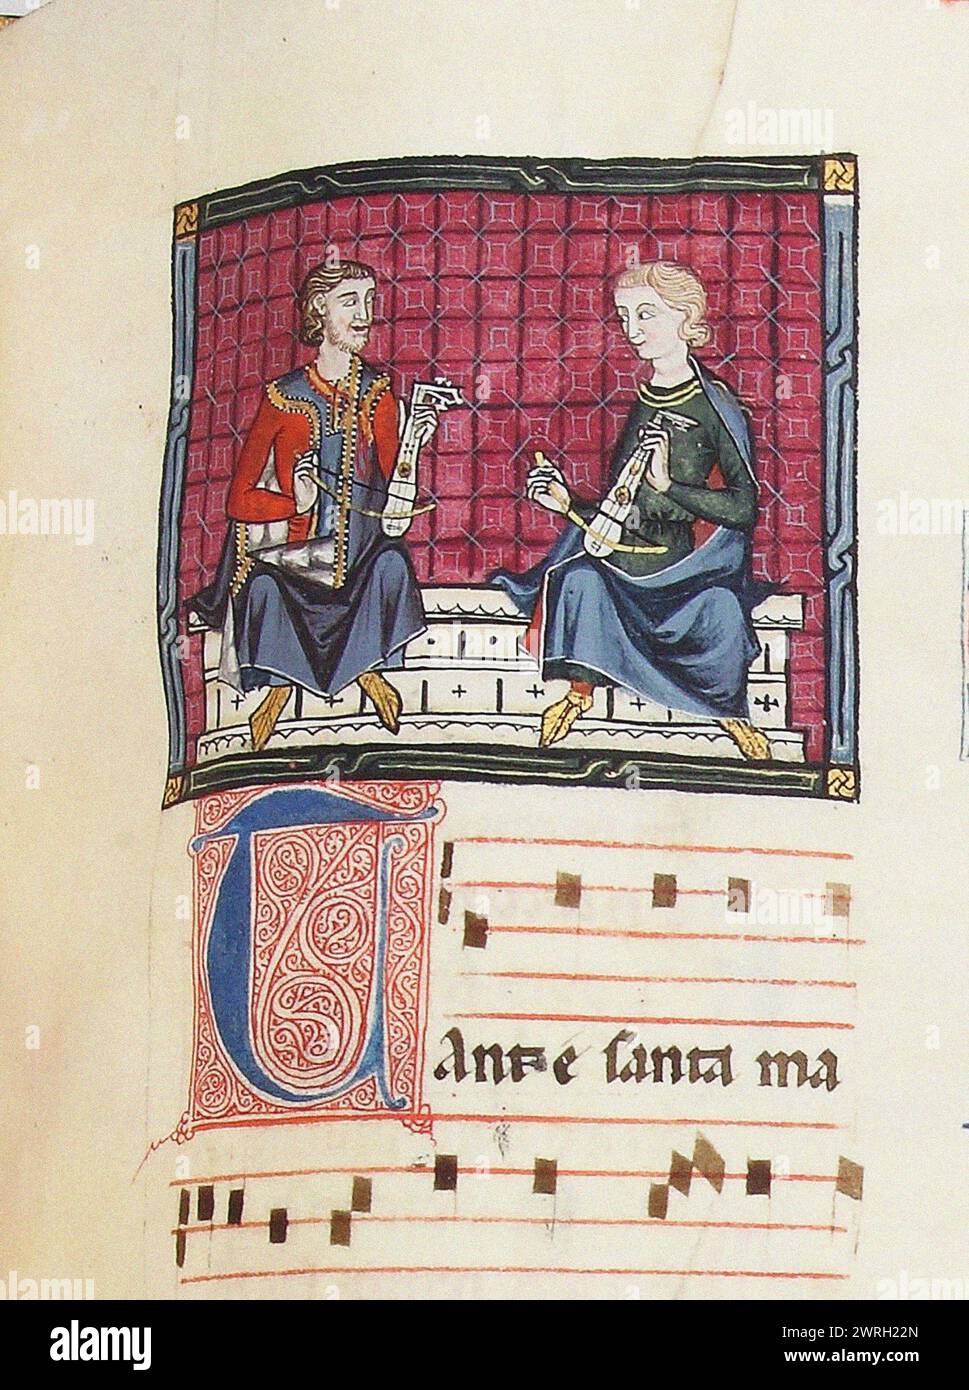 alamy
TAnt e santa ma
alamy
Image ID: 2WRH22N
www.alamy.com